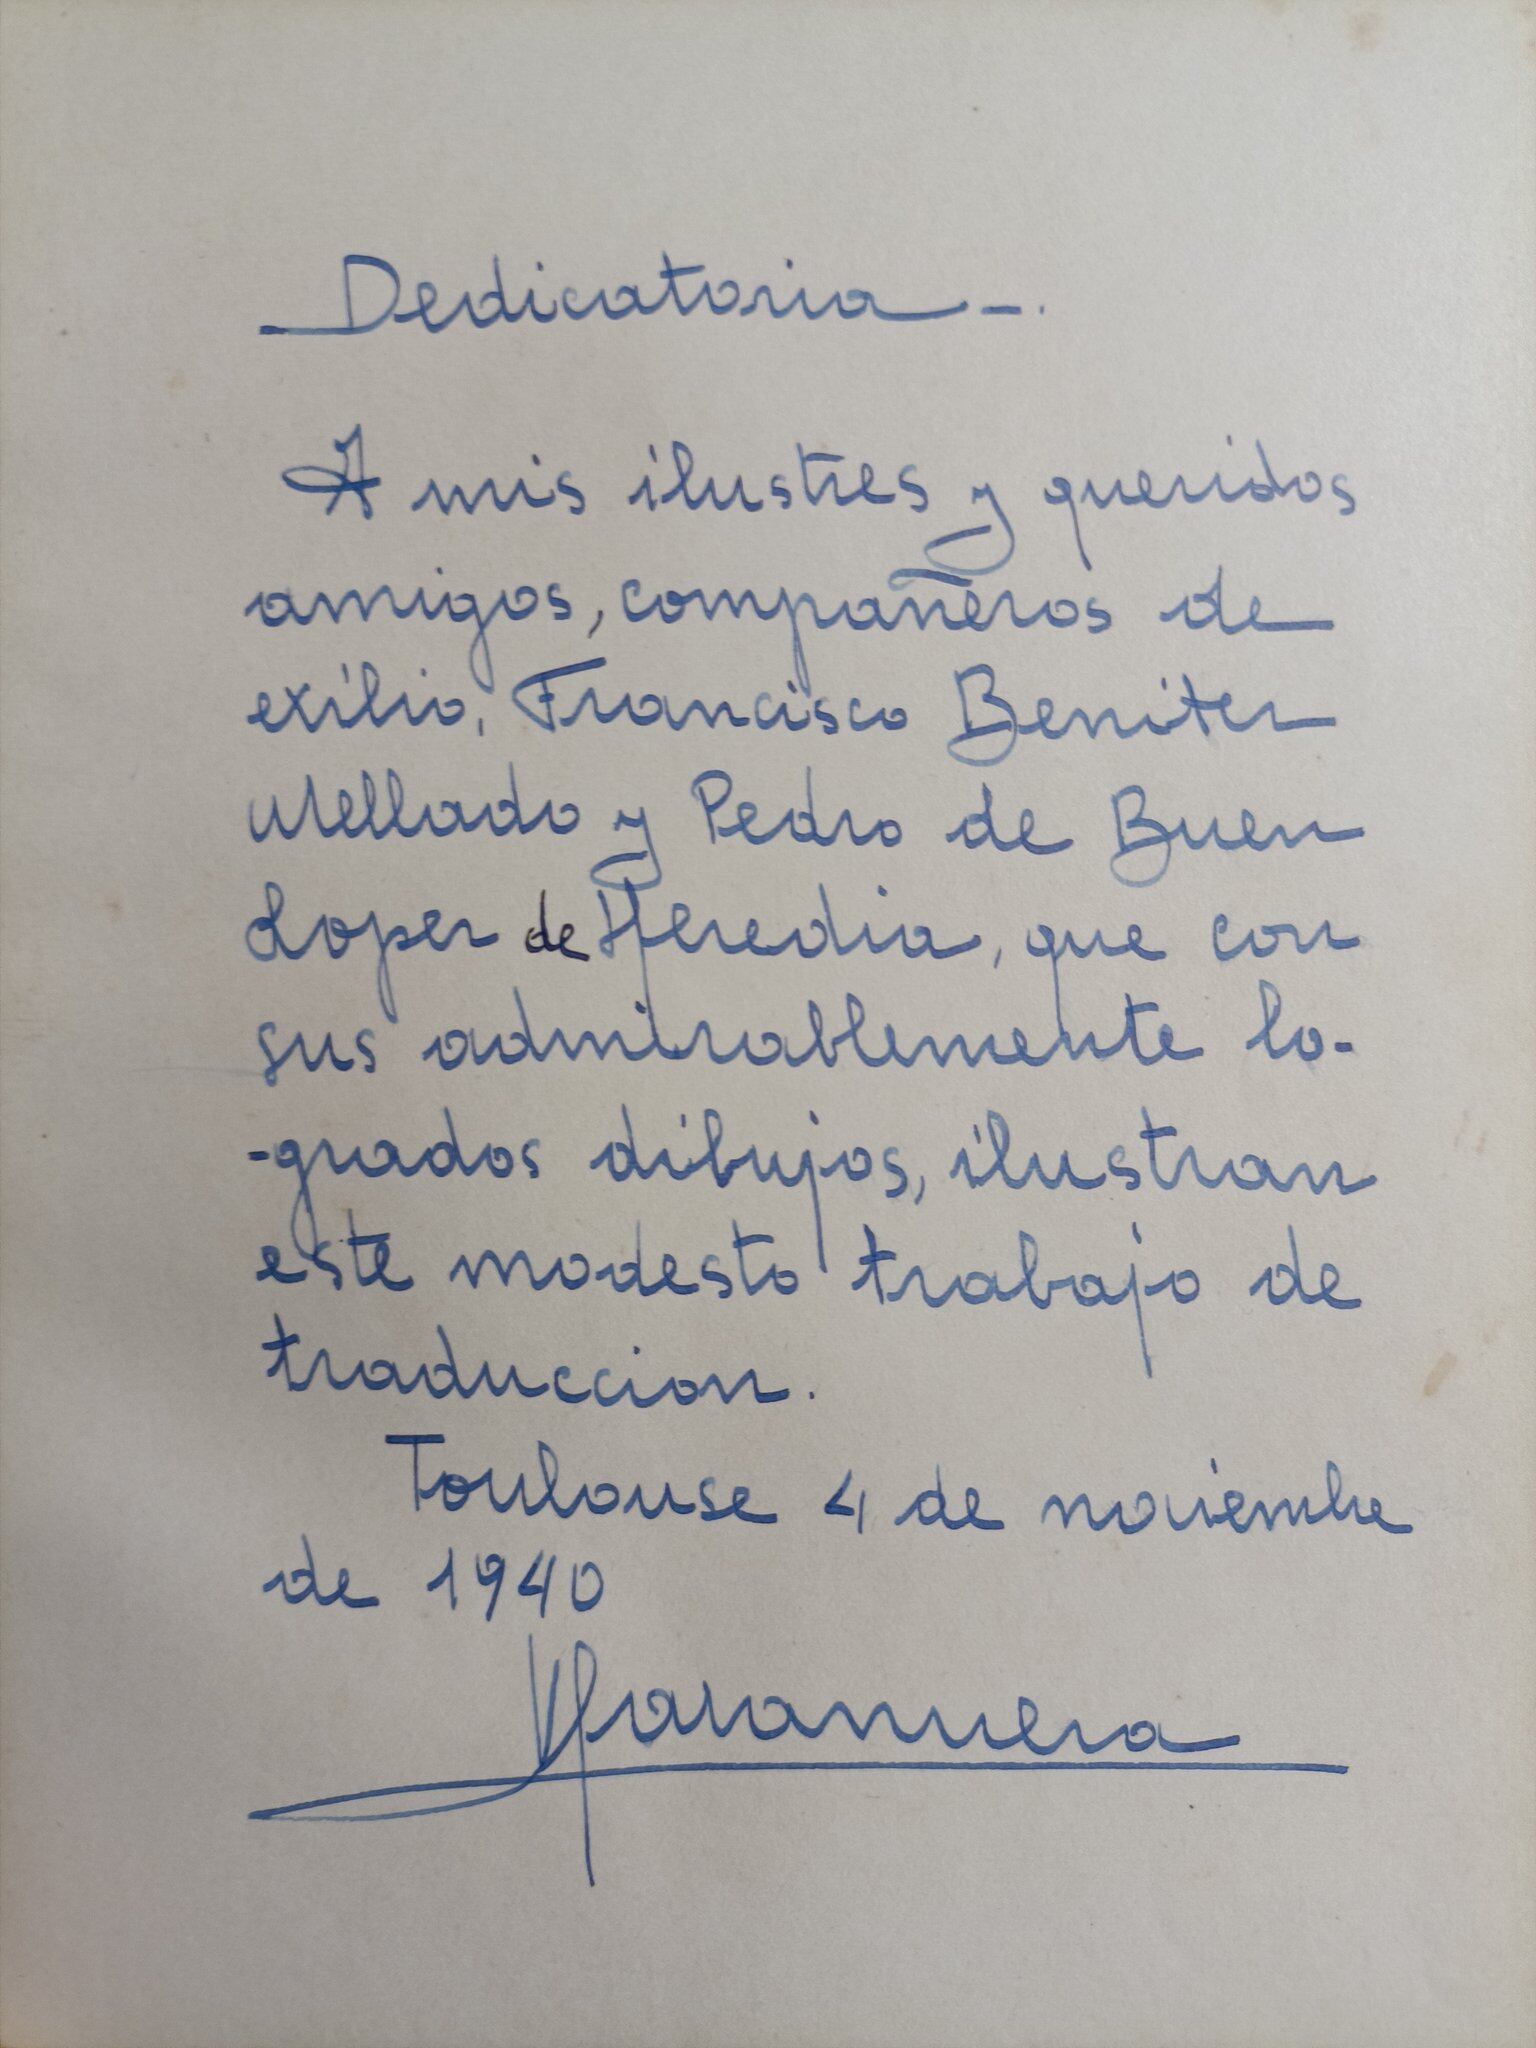 Dedicatoria -.
A mis ilustres y queridos
amigos, compañeros de
exilio, Francisco Benitez
Mellado y Pedro de Buen
Lopez de Heredia, que con
sus admirablemente lo-
-grados dibujos, ilustran
este modesto trabajo de
traduccion.
Toulouse 4 de noviembre
de 1940